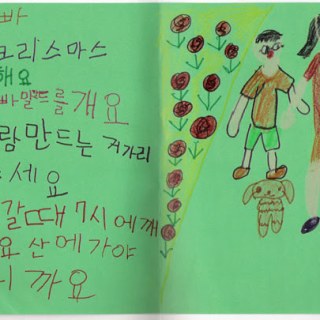 빠
크리스마스
해요
빠말드를개요
람만드는 거가리
세요
갈때 7시에깨
요 산에가야
니까요